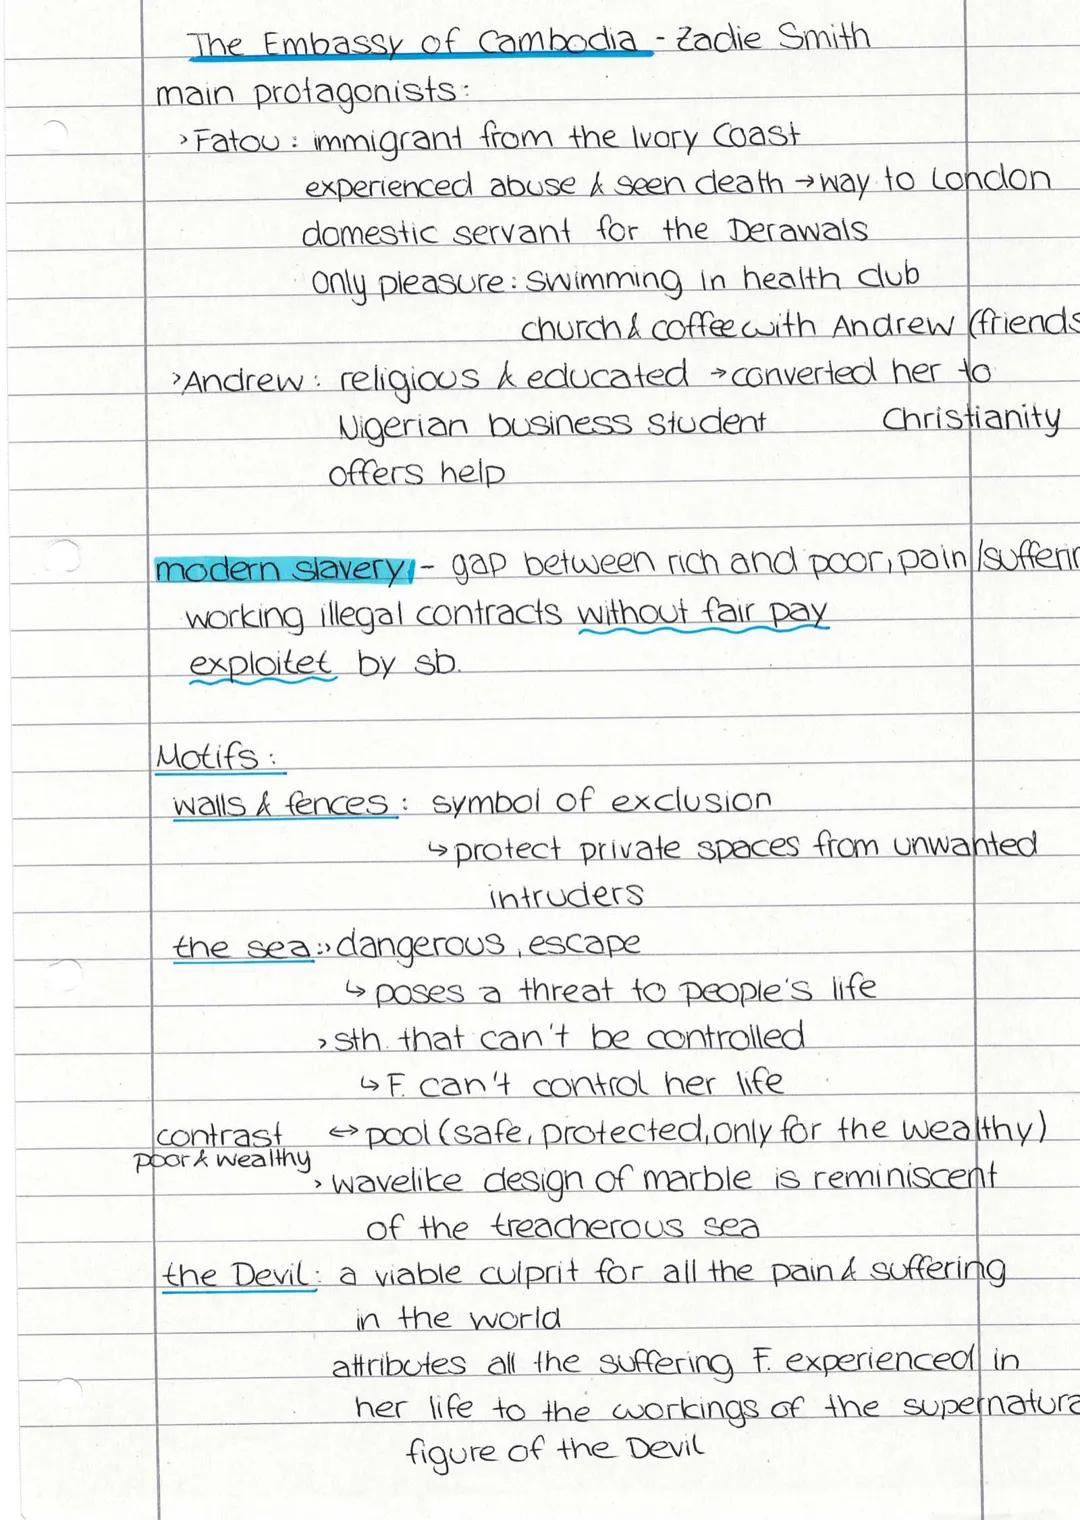 The Embassy of Cambodia - Zadie Smith
main protagonists:
> Fatou : immigrant from the Ivory Coast
experienced abuse & seen death → way to London
domestic servant for the Derawals
Only pleasure: Swimming in health club
church & coffee with Andrew (friends
> Andrew : religious & educated → converted her to
Nigerian business student Christianity
offers help
modern slavery, - gap between rich and poor, pain /sufferin
working illegal contracts without fair pay
exploitet by sb.
Motifs :
walls & fences : symbol of exclusion
↳ protect private spaces from unwanted
intruders
the sea: > dangerous, escape
↳ poses a threat to people's life
> sth. that can't be controlled
↳ F. can't control her life
contrast ↔ pool (safe, protected, only for the wealthy)
poor & wealthy
> wavelike design of marble is reminiscent
of the treacherous sea
the Devil: a viable culprit for all the pain & suffering
in the world
attributes all the suffering F. experienced in
her life to the workings of the supernatura
figure of the Devil